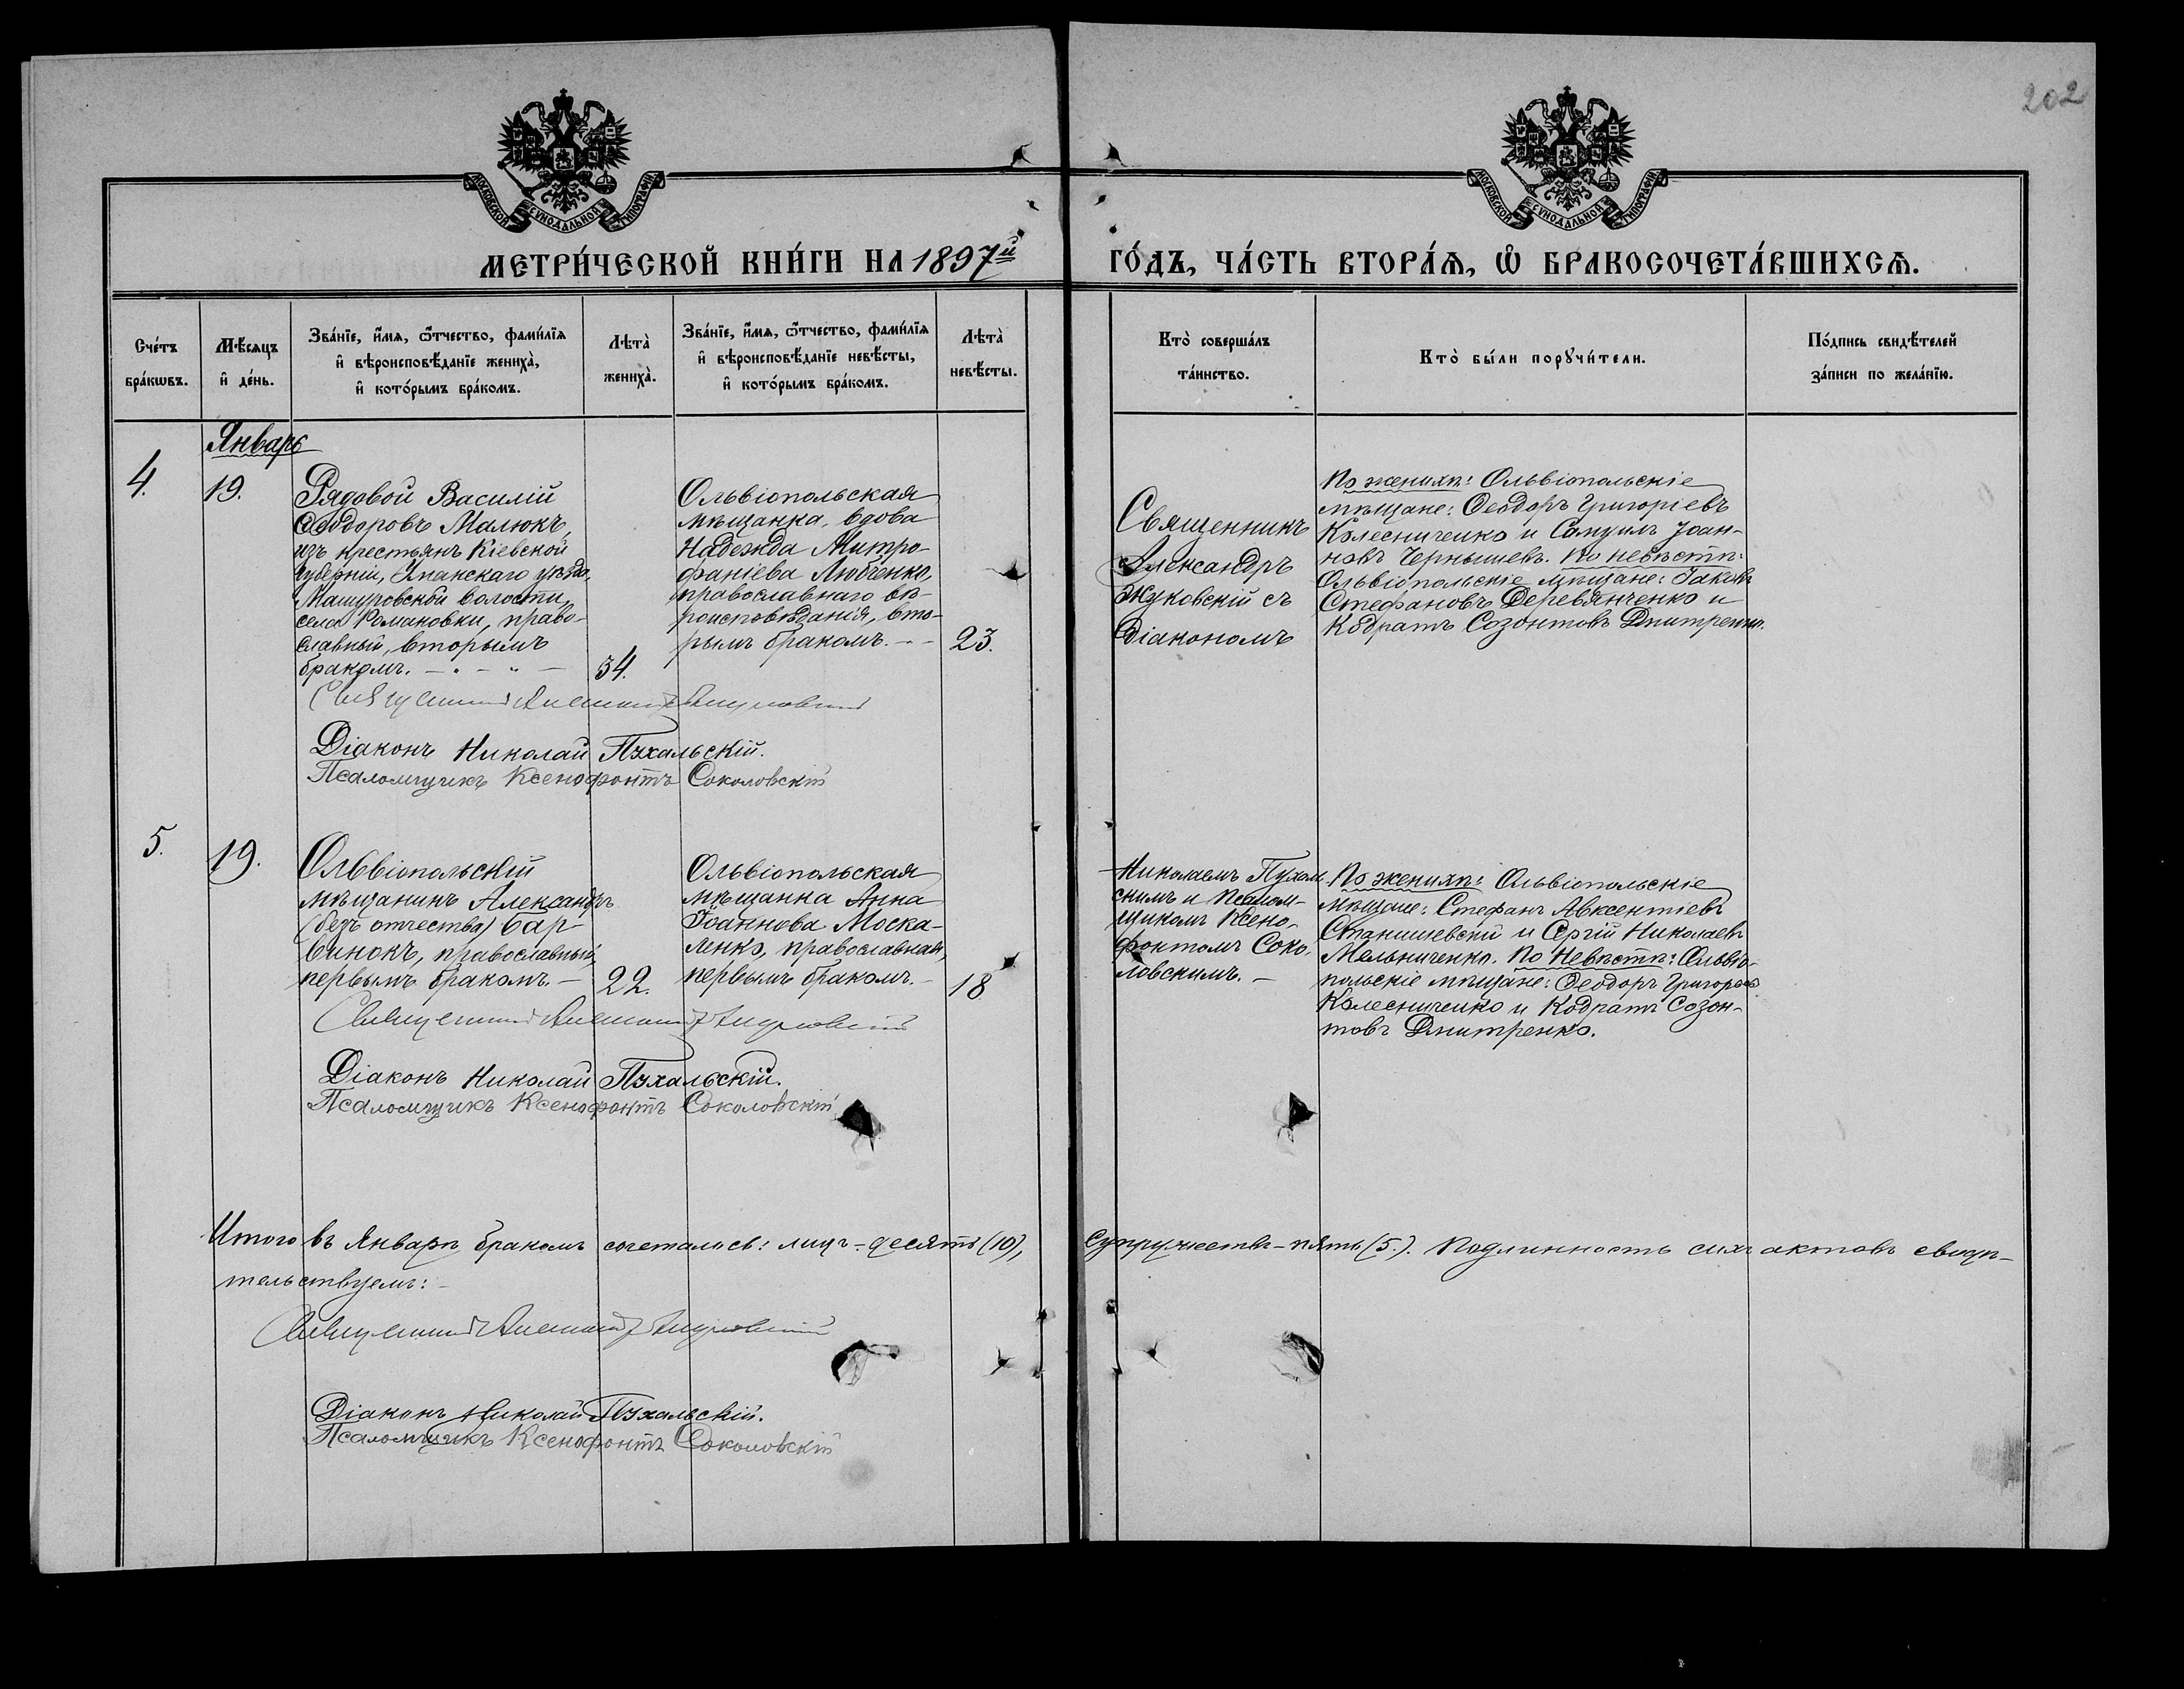 202
МОСКОВСКОЙ СУНОДАЛЬНОЙ ТИПОГРАФІИ
МОСКОВСКОЙ СУНОДАЛЬНОЙ ТИПОГРАФІИ
МЕТРИ́ЧЕСКОЙ КНИ́ГИ НА 1897й
ГО́ДЪ, ЧА́СТЬ ВТОРА́Ѧ, Ѡ БРАКОСОЧЕТА́ВШИХСѦ.
Сче́тъ
бра́кωвъ.
Мѣ́сѧцъ
и҆ де́нь.
Зва́нїе, и҆́мѧ, ѻ҆́тчество, фами́лїѧ
и҆ вѣроисповѣ́данїе жениха̀,
и҆ кото́рымъ бра́комъ.
Лѣта̀
жениха̀.
Зва́нїе, и҆́мѧ, ѻ҆́тчество, фами́лїѧ
и҆ вѣроисповѣ́данїе невѣ́сты,
и҆ кото́рымъ бра́комъ.
Лѣта̀
невѣ́сты.
Кто̀ соверша́лъ
та́инство.
Кто̀ бы́ли порꙋчи́тели.
По́дпись свидѣ́телей
за́писи по жела́нїю.
Январь
4.
19.
Рядовой Василій
Ѳеодоровъ Малюкъ,
изъ крестьянъ Кіевской
губерніи, Уманскаго уѣзда,
Машуровской волости,
села Романовки, право-
славный, вторымъ
бракомъ. — . — „ —
34.
Ольвіопольская
мѣщанка, вдова
Надежда Митро-
фаніева Любченко,
православнаго вѣ-
роисповѣданія, вто-
рымъ бракомъ. - -
23.
Священникъ
Александръ
Жуковскій съ
Діакономъ
По женихѣ: Ольвіопольскіе
мѣщане: Ѳеодоръ Григоріевъ
Колесниченко и Самуилъ Іоан-
новъ Чернышевъ. По невѣстѣ:
Ольвіопольскіе мѣщане: Іаковъ
Стефановъ Деревянченко и
Кодратъ Созонтовъ Дмитренко.
Священникъ Александръ Жуковскій
Діаконъ Николай Пухальскій.
Псаломщикъ Ксенофонтъ Соколовскій
5.
19.
Ольвіопольскій
мѣщанинъ Александръ
(безъ отчества) Бар-
винокъ, православный,
первымъ бракомъ. —
22.
Ольвіопольская
мѣщанка Анна
Іоаннова Моска-
ленко, православная,
первымъ бракомъ. -
18
Николаемъ Пухаль
скимъ и Псалом-
щикомъ Ксено-
фонтомъ Соко-
ловскимъ. -
По женихѣ: Ольвіопольскіе
мѣщане: Стефанъ Авксентіевъ
Станишевскій и Сергій Николаевъ
Мельниченко. По Невѣстѣ: Ольвіо-
польскіе мѣщане: Ѳеодоръ Григорьев
Колесниченко и Кодратъ Созон-
товъ Дмитренко.
Священникъ Александръ Жуковскій
Діаконъ Николай Пухальскій.
Псаломщикъ Ксенофонтъ Соколовскій
Итого въ Январѣ бракомъ сочеталось: лицъ - десять (10),
супружествъ - пять (5.). Подлинность сихъ актовъ свидѣ-
тельствуемъ: -
Священникъ Александръ Жуковскій
Діаконъ Николай Пухальскій.
Псаломщикъ Ксенофонтъ Соколовскій